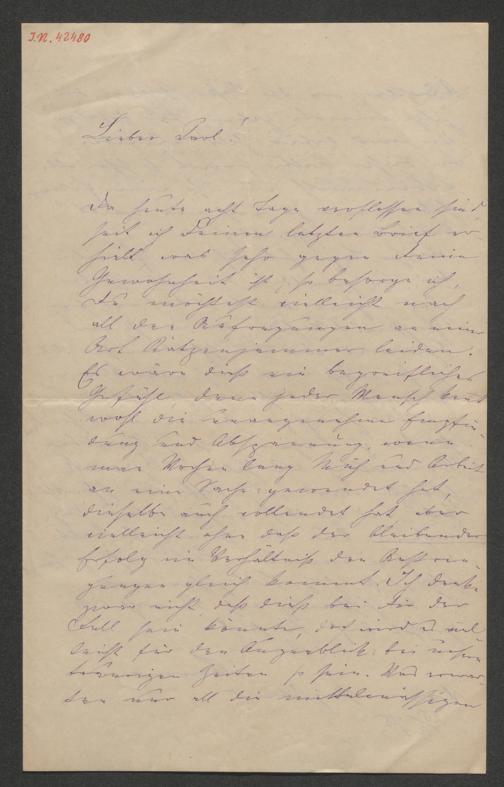 I.N. 42480
Lieber Paul!
Da heute acht Tage verflossen sind,
seit ich Deinen letzten Brief er
hielt was sehr gegen Deine
Gewohnheit ist, so besorge ich,
Du möchtest vielleicht nach
all den Aufregungen an einer
Art Katzenjammer leiden.
Es wäre dieß ein begreifliches
Gefühl, denn jeder Mensch kennt
wohl die unangenehme Empfin-
dung und Abspannung, wenn
man Wochen lang Müh und Arbeit
an eine Sache gewendet hat,
dieselbe auch vollendet hat aber
vielleicht ohne daß der bleibende
Erfolg im Verhältniß den Anstren-
gungen gleich kommt. Ich denke
zwar nicht daß dieß bei Dir der
Fall sein könnte, das wird viel
leicht für den Augenblick bei unsern
traurigen Zeiten so sein. Und
ten nur all die mittelmässigen